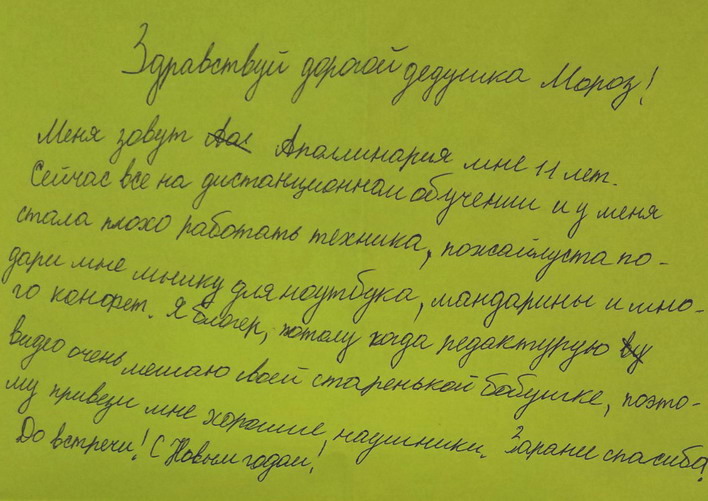 Здравствуй дорогой дедушка Мороз!
Меня зовут Аполлинария мне 11 лет.
Сейчас все на дистанционном обучении и у меня
стала плохо работать техника, пожайлуста по-
дари мне мышку для ноутбука, мандарины и мно-
го конфет. Я блогер, потому когда редактурую
видео очень мешаю своей старенькой бобушке, поэто-
му привези мне хорошие наушники. Заране спасиба!
До встречи! С Новым годом!